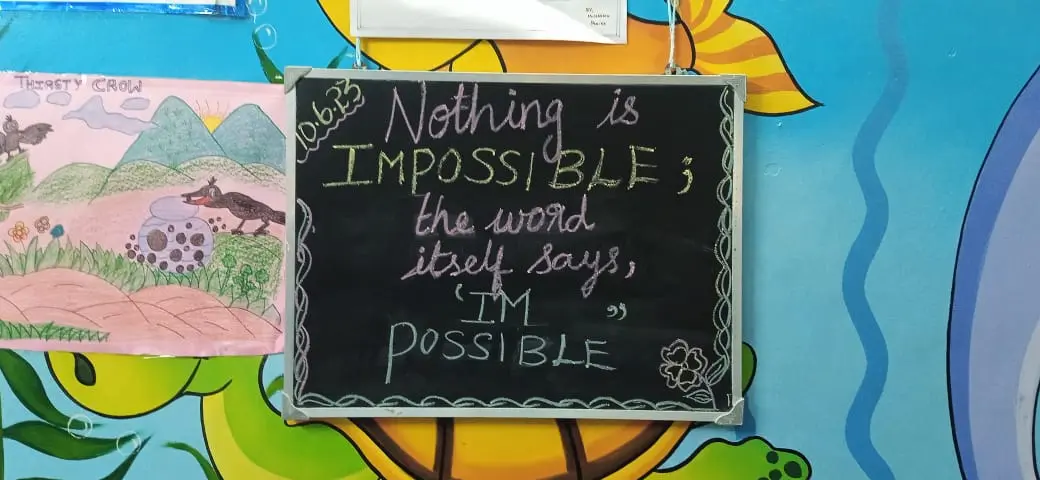 THIRSTY CROW
10.6.23
Nothing is
IMPOSSIBLE ;
the word
itself says,
'IM ”
POSSIBLE